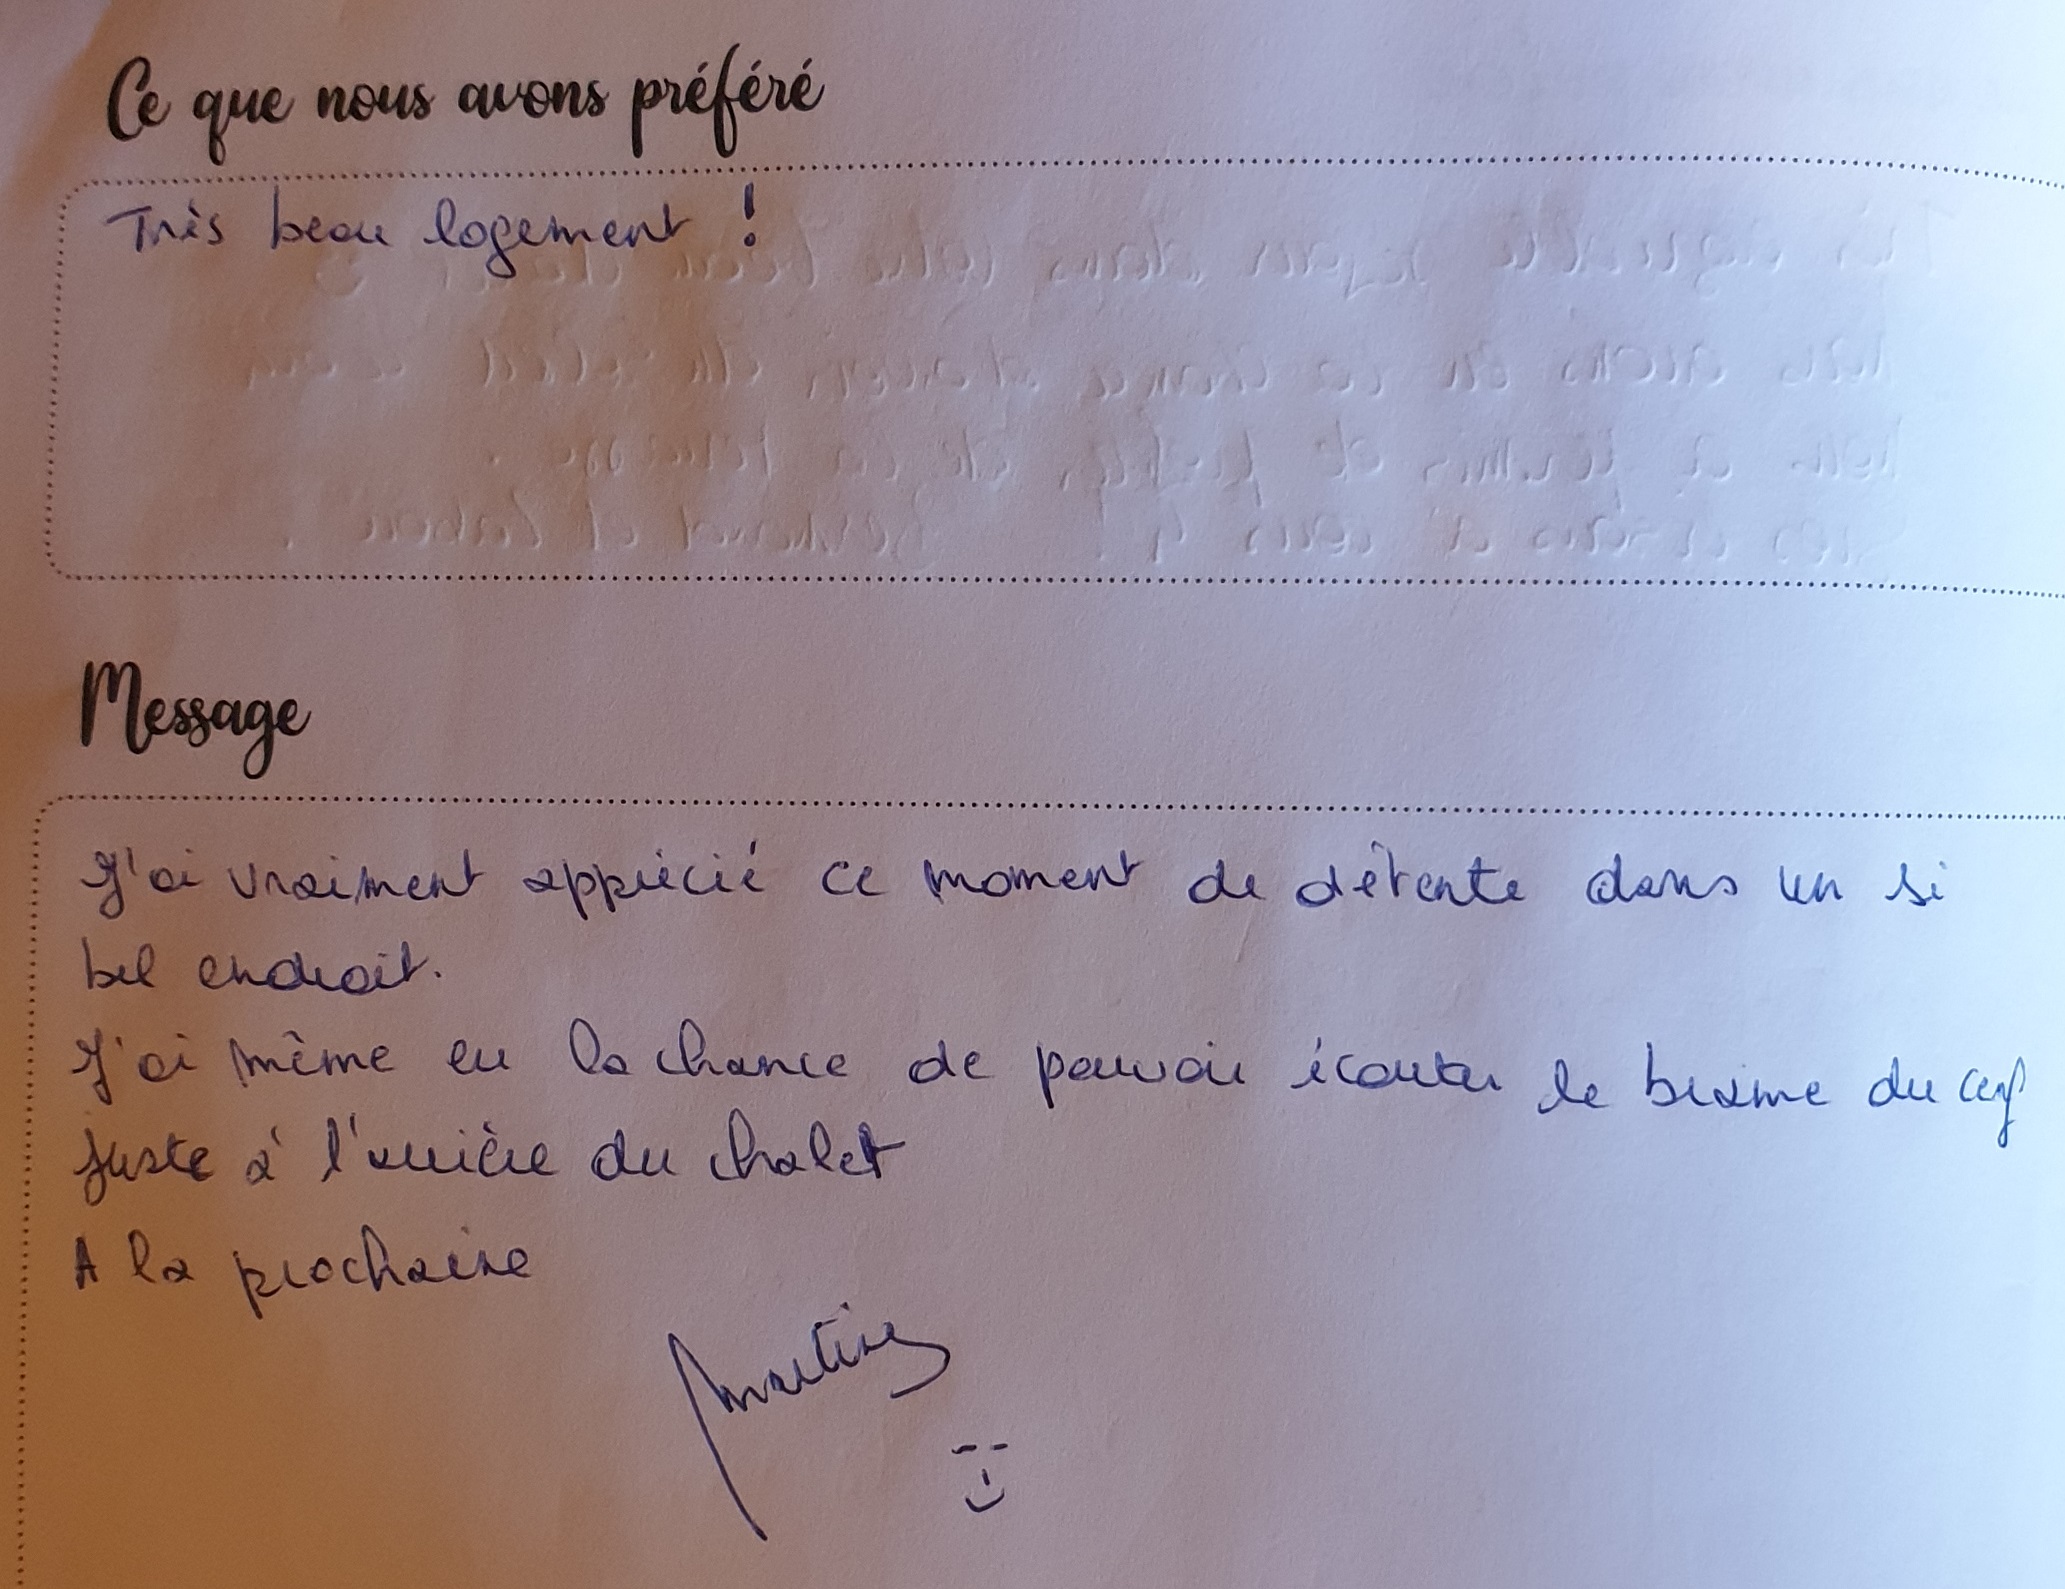 Ce que nous avons préféré
Très beau logement !
Message
J'ai vraiment apprécié ce moment de détente dans un si
bel endroit.
J'ai même eu la chance de pouvoir écouter le brame du cerf
juste à l'arrière du chalet
A la prochaine
Martine